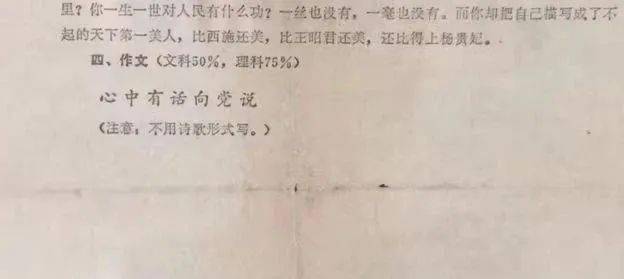 里？你一生一世对人民有什么功？一丝也没有，一毫也没有。而你却把自己描写成了不
起的天下第一美人，比西施还美，比王昭君还美，还比得上杨贵妃。
四、作文（文科50%，理科75%）
心中有话向党说
（注意：不用诗歌形式写。）